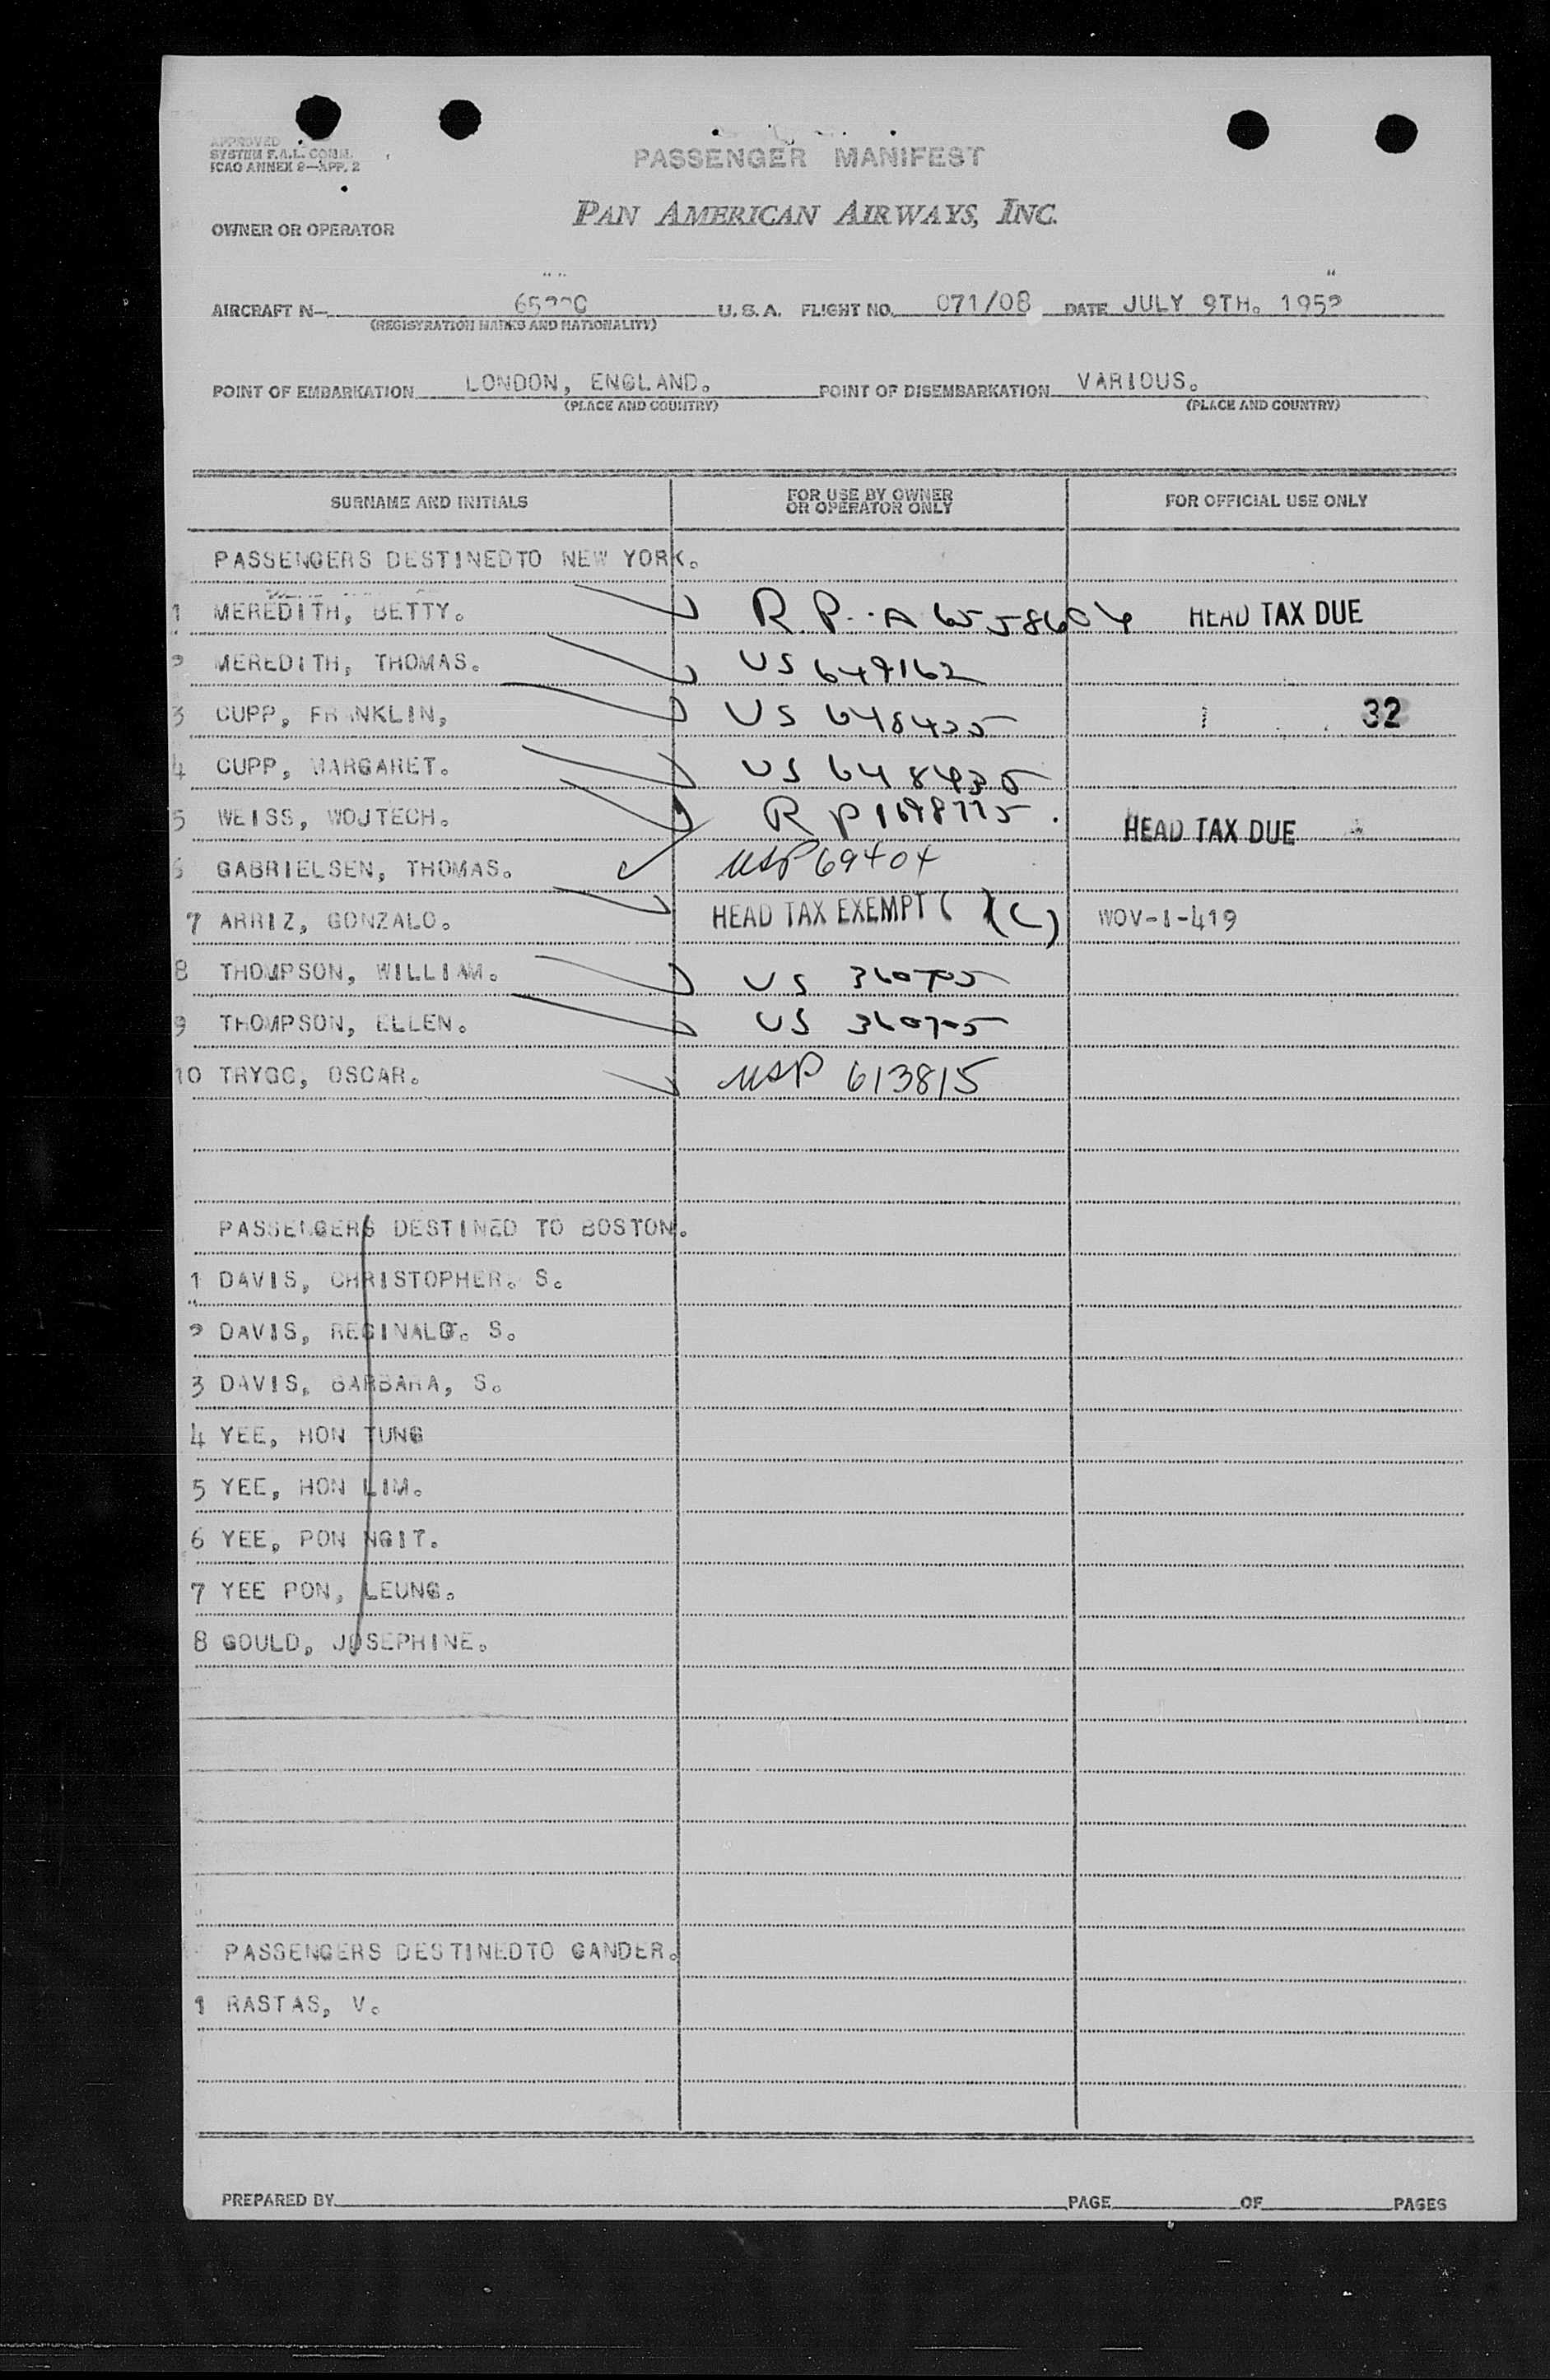 APPROVED
SYSTEM F.A.L. COMM.
ICAO ANNEX 9—APP. 2
PASSENGER MANIFEST
PAN AMERICAN AIRWAYS, INC.
OWNER OR OPERATOR
AIRCRAFT N— U.S.A. FLIGHT NO. 071/08 DATE JULY 9TH. 1952
(REGISTRATION MARKS AND NATIONALITY)
POINT OF EMBARKATION LONDON, ENGLAND. POINT OF DISEMBARKATION VARIOUS.
(PLACE AND COUNTRY) (PLACE AND COUNTRY)
SURNAME AND INITIALS FOR USE BY OWNER OR OPERATOR ONLY FOR OFFICIAL USE ONLY
PASSENGERS DESTINEDTO NEW YORK.
1 MEREDITH, BETTY. R P. A6558604 HEAD TAX DUE
2 MEREDITH, THOMAS. US 649162
3 CUPP, FRANKLIN, US 648435 32
4 CUPP, MARGARET. US 648435
5 WEISS, WOJTECH. R P 1698775. HEAD TAX DUE
6 GABRIELSEN, THOMAS. USP 69404
7 ARRIZ, GONZALO. HEAD TAX EXEMPT ( )(C) WOV-1-419
8 THOMPSON, WILLIAM. US 360705
9 THOMPSON, ELLEN. US 360705
10 TRYGG, OSCAR. USP 613815
PASSENGERS DESTINED TO BOSTON.
1 DAVIS, CHRISTOPHER. S.
2 DAVIS, REGINALD. S.
3 DAVIS, BARBARA, S.
4 YEE, HON TUNG
5 YEE, HON LIM.
6 YEE, PON NGIT.
7 YEE PON, LEUNG.
8 GOULD, JOSEPHINE.
PASSENGERS DESTINEDTO GANDER.
1 RASTAS, V.
PREPARED BY PAGE OF PAGES